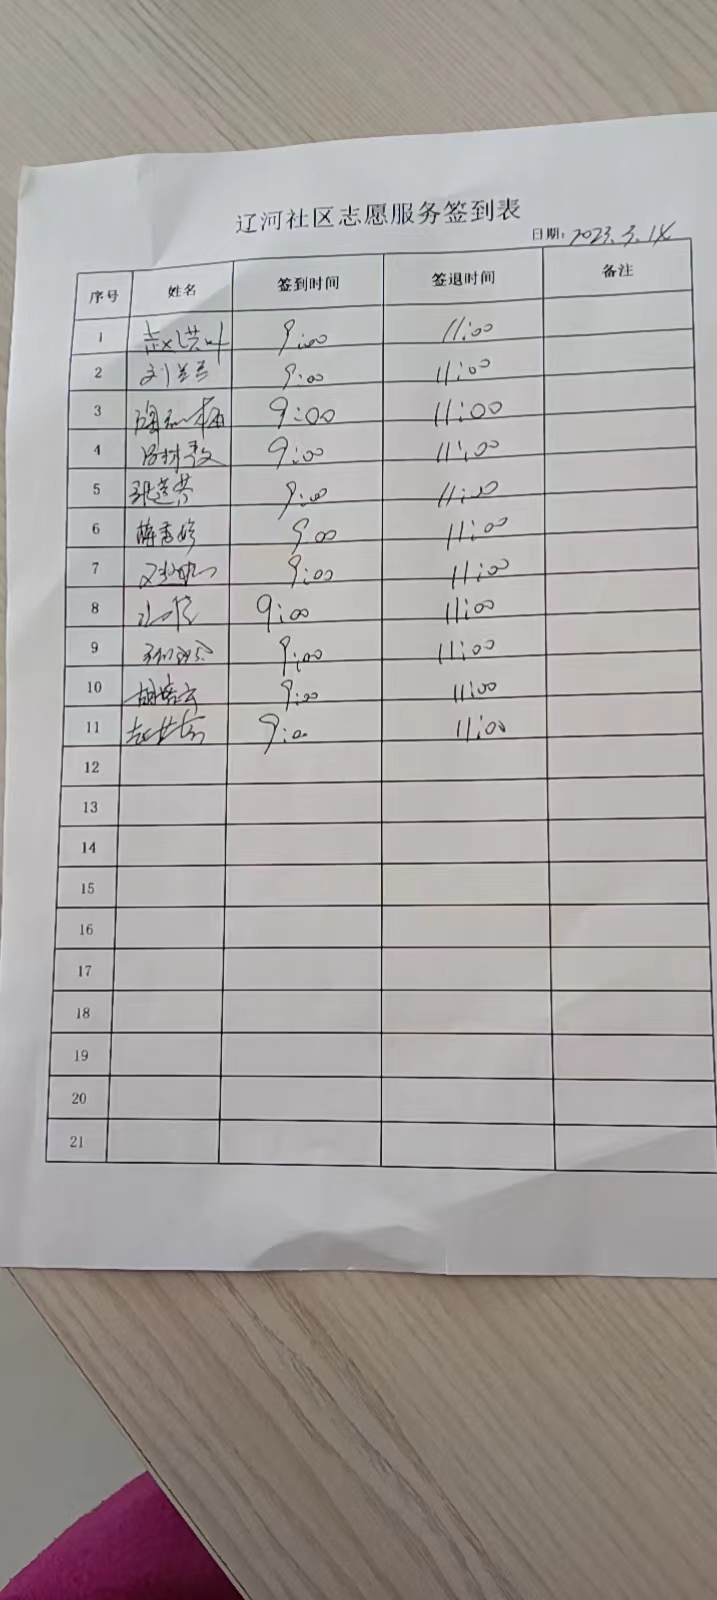 辽河社区志愿服务签到表
日期: 2023.3.14
序号 姓名 签到时间 签退时间 备注
1 9:00 11:00
2 刘 9:00 11:00
3 9:00 11:00
4 9:00 11:00
5 9:00 11:00
6 9:00 11:00
7 9:00 11:00
8 9:00 11:00
9 9:00 11:00
10 9:00 11:00
11 9:00 11:00
12
13
14
15
16
17
18
19
20
21